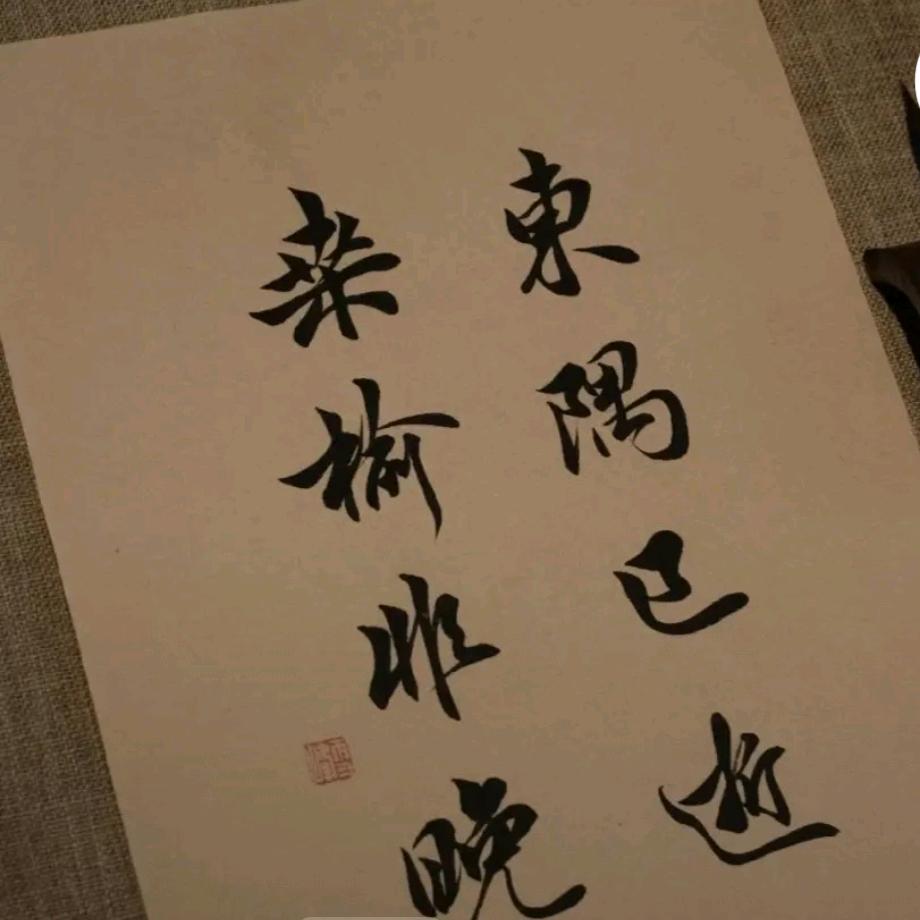 東隅已逝
桑榆非晚